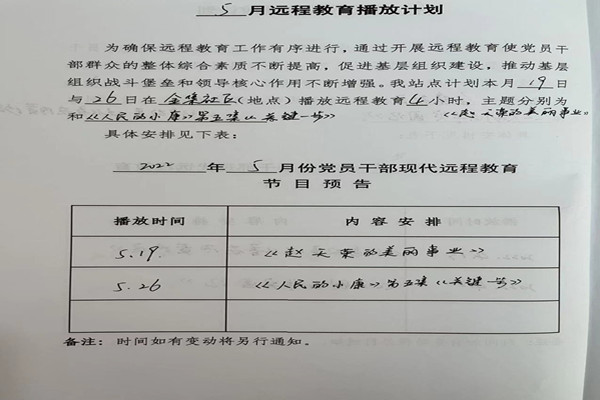 5 月远程教育播放计划
为确保远程教育工作有序进行，通过开展远程教育使党员干
部群众的整体综合素质不断提高，促进基层组织建设，推动基层
组织战斗堡垒和领导核心作用不断增强。我站点计划本月 19 日
与 26 日在 金集社区(地点)播放远程教育 4 小时，主题分别为
和《人民的小康》第五集《关键一步》 《赵天荣的美丽事业》。
具体安排见下表：
2022 年 5 月份党员干部现代远程教育
节目预告
播放时间 内容安排
5.19. 《赵天荣的美丽事业》
5.26 《人民的小康》第五集《关键一步》
备注：时间如有变动将另行通知。